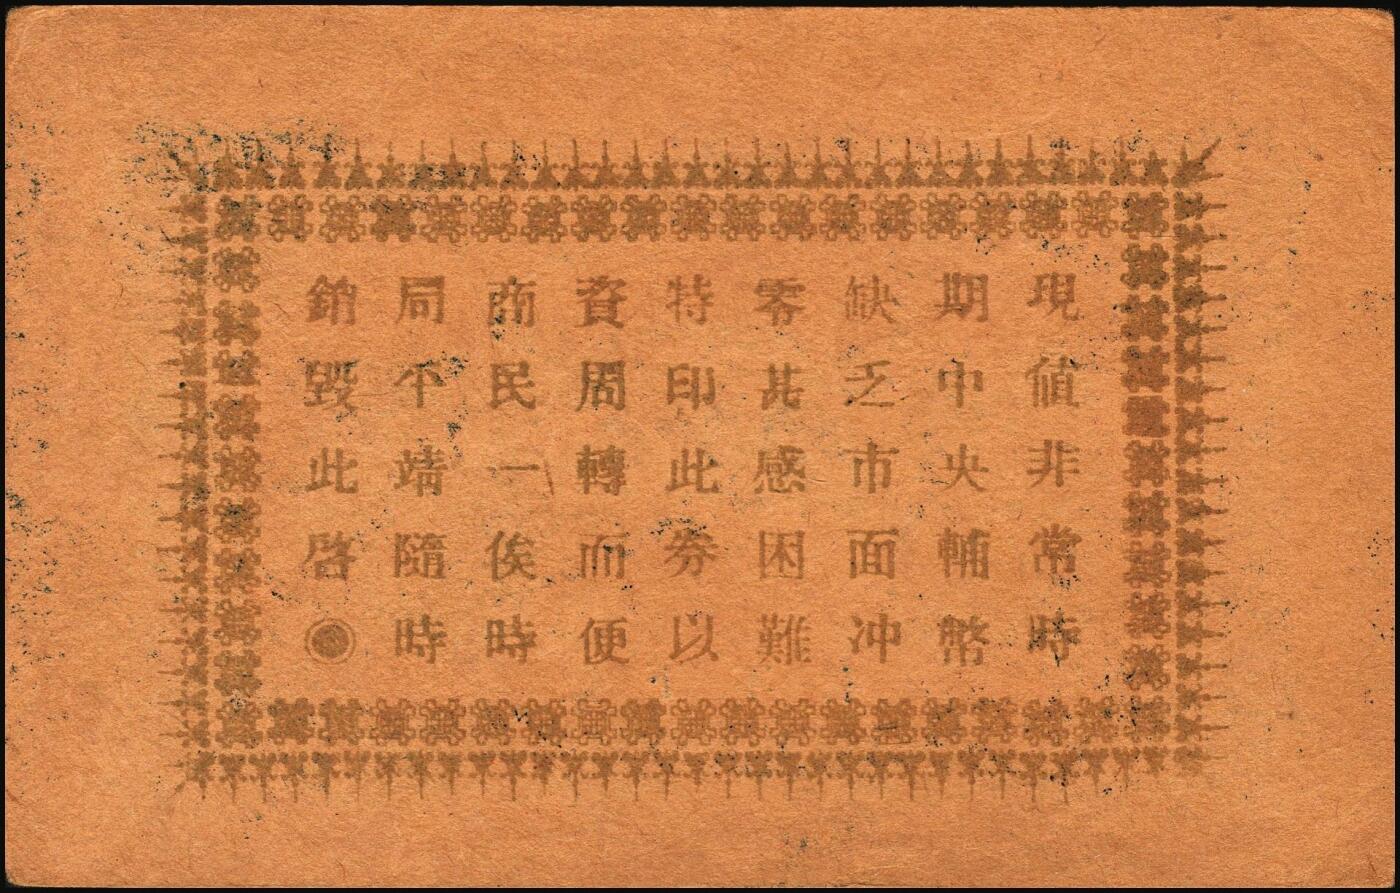 現値非常時
期中央輔幣
缺乏市面冲
零甚感困難
特印此券以
資周轉而便
商民一俟時
局平靖隨時
銷毀此啓